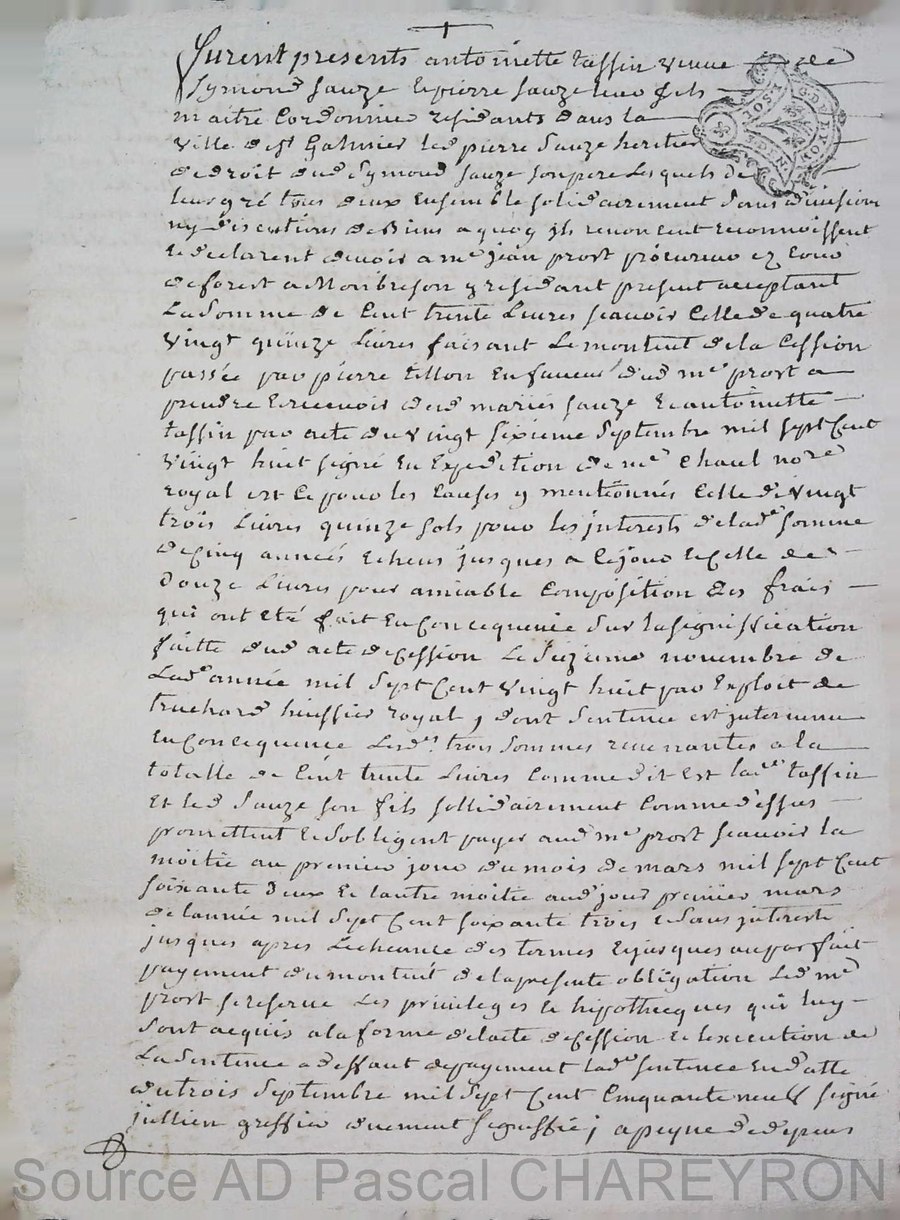 furent presents antoinette tassin veuve de
Symond Sauze et pierre Sauze leur fils
maitre Cordonnier residants dans la
ville de St Galmier led pierre Sauze heritier
de droit dud Symond Sauze son pere lesquels de
leur gré tous deux Ensemble solidairement Sans division
ny discutions de Biens a quoy ils renoncent reconnoissent
et declarent devoir a me jean prost procureur ez Cours
de forest a Montbrison y residant present acceptant
La Somme de Cent trente Livres scavoir Celle de quatre
vingt quinze Livres faisant Le montent de la Cession
passée par pierre tillon En faveur dud me prost a
prendre Et recevoir desd mariés Sauze Et antoinette
tassin par acte du vingt sixieme Septembre mil Sept Cent
vingt huit signé En Expedition de me Chaul nore
royal et Ce pour les Causes y mentionnés Celle de vingt
trois Livres quinze sols pour les jnterests de lade somme
de Cinq années Echeus jusques a Ce jour Et Celle de
Douze Livres pour amiable Composition des frais
qui ont Eté fait En Concequence Sur la signiffication
faitte dud acte de Cession Le Sizieme novembre de
Lade année mil Sept Cent vingt huit par Exploit de
truchard huissier royal, dont Sentence est jntervenue
En Concequence Lesds trois Sommes revenantes a la
totalle de Cent trente Livres Comme dit Est lade tassin
Et led Sauze son fils sollidairement Comme dessus
promettent Et S'obligent payer aud me prost scavoir la
moitié au premier jour du mois de mars mil sept Cent
soixante Deux Et lautre moitié aud jour premier mars
de lannée mil Sept Cent soixante trois Et Sans jnterests
jusques apres Lecheance des termes Et jusques au parfait
payement du montent de la presente obligation Led me
prost se reserve Les privileges Et hipothecques qui luy
sont acquis a la forme de lacte de Cession Et lexecution de
La Sentence a deffaut de payement lade sentence En datte
du trois Septembre mil Sept Cent Cinquante neuf signé
jullien greffier duement signiffié, a peyne de depens
Source AD Pascal CHAREYRON